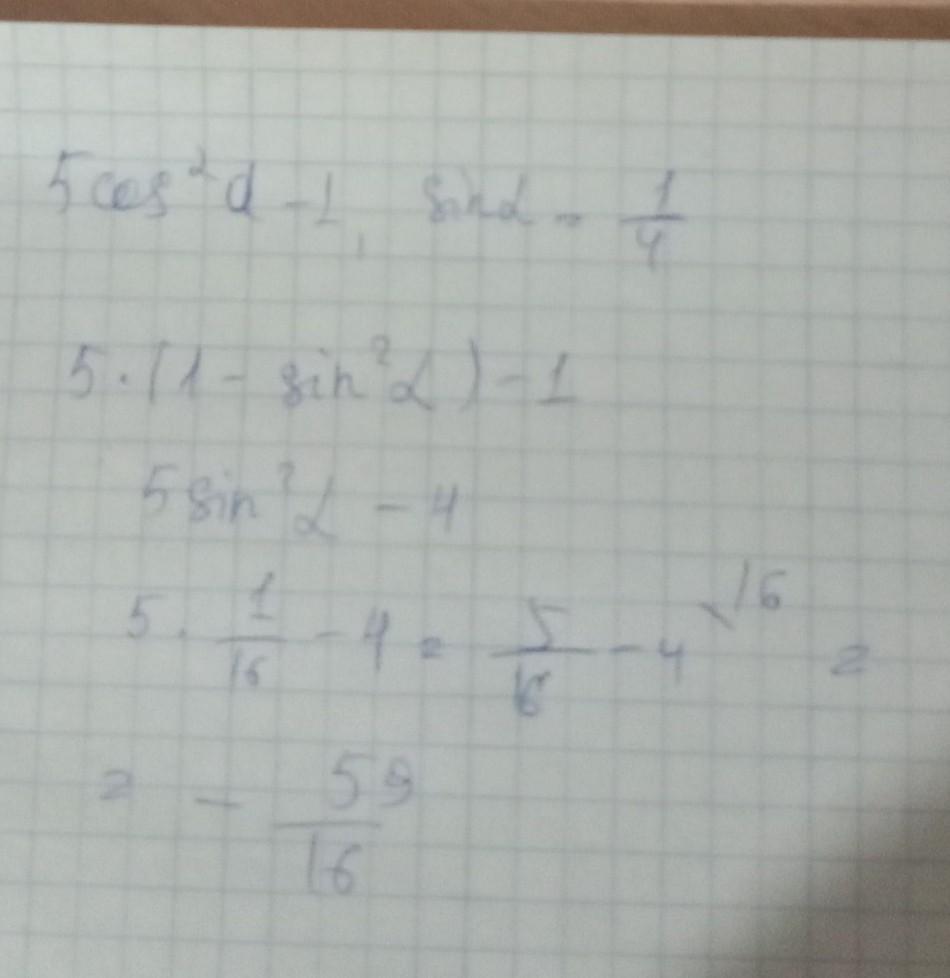 5cos²α - 1, sinα = 1/4
5·(1 - sin²α) - 1
5sin²α - 4
5 · 1/16 - 4 = 5/16 - 4 \16 =
= - 59/16